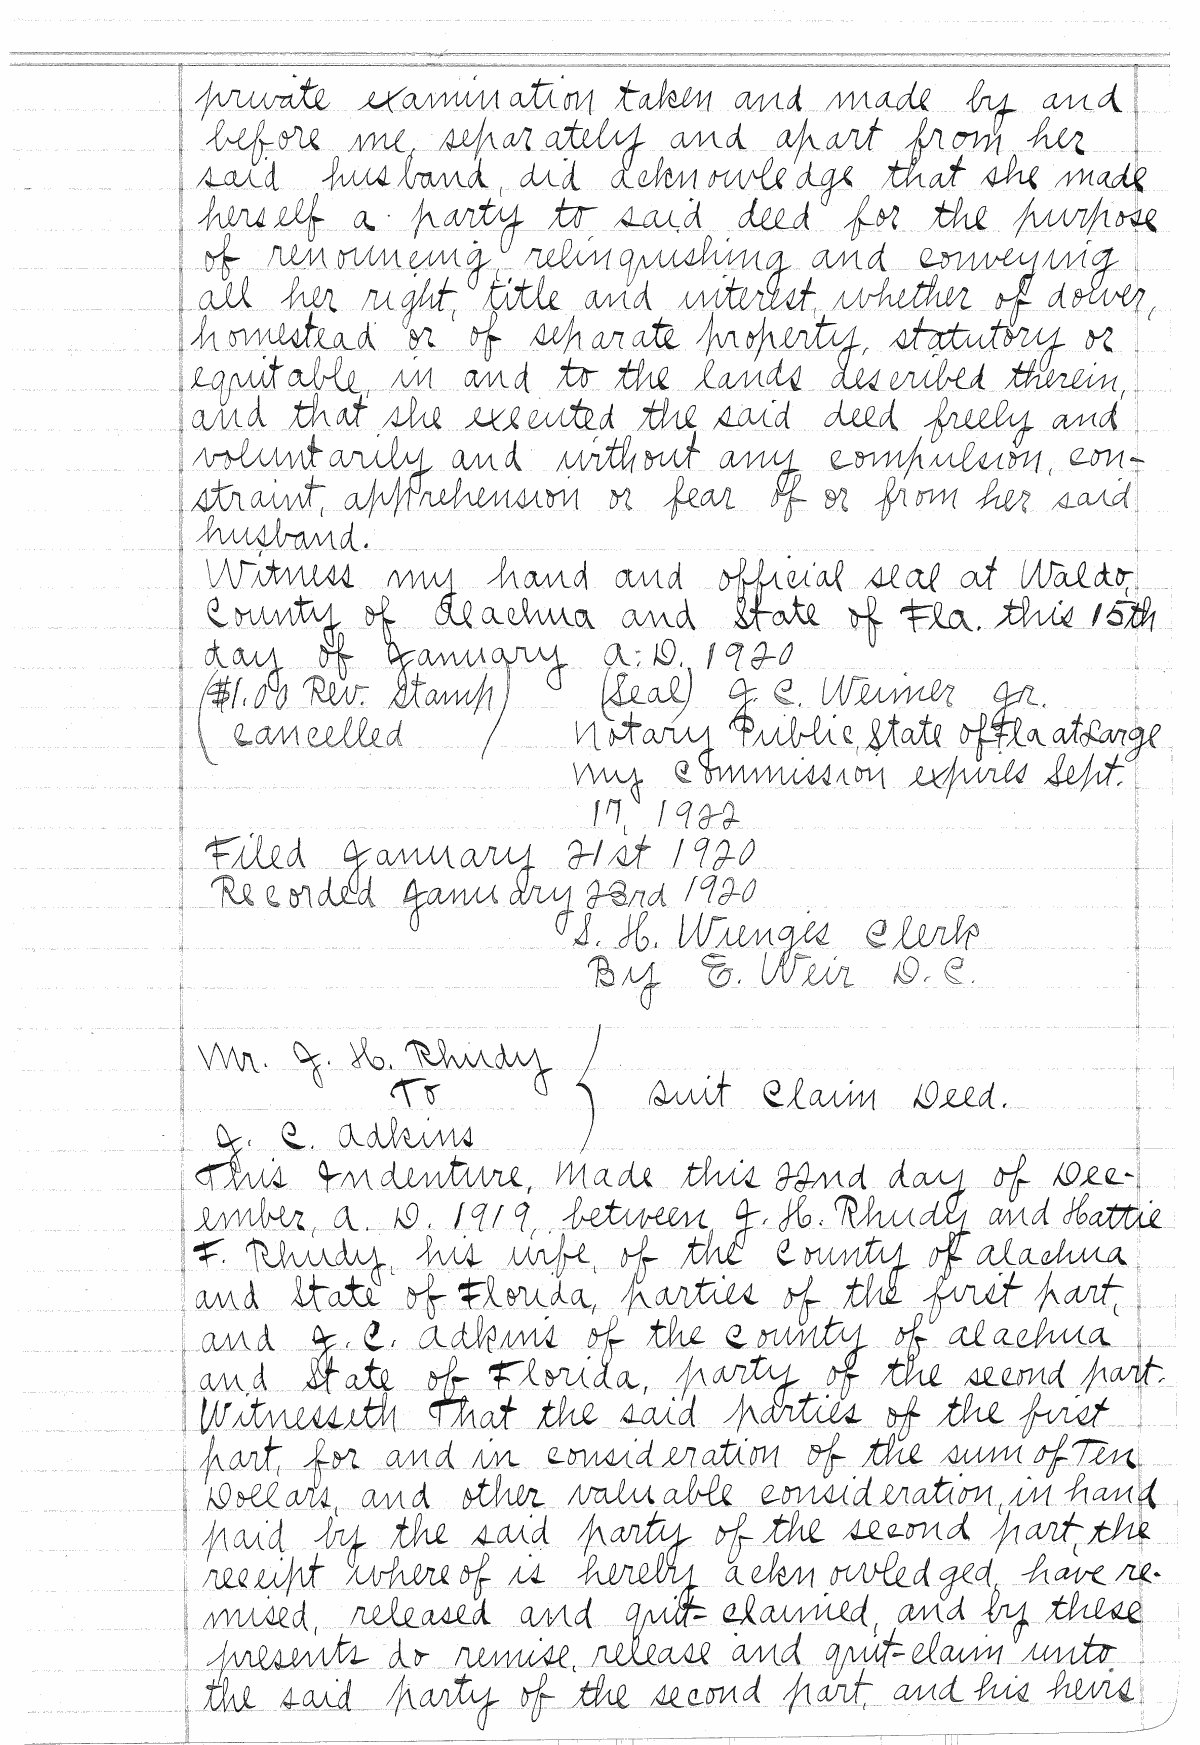 private examination taken and made by and
before me, separately and apart from her
said husband, did acknowledge that she made
herself a party to said deed for the purpose
of renouncing, relinquishing and conveying
all her right, title and interest, whether of dower,
homestead or of separate property, statutory or
equitable, in and to the lands described therein,
and that she executed the said deed freely and
voluntarily and without any compulsion, con-
straint, apprehension or fear of or from her said
husband.
Witness my hand and official seal at Waldo,
County of Alachua and State of Fla. this 15th
day of January A.D. 1920
($1.00 Rev. Stamp) (Seal) J. C. Weimer Jr.
(cancelled) Notary Public, State of Fla at Large
My Commission expires Sept.
17, 1922
Filed January 21st 1920
Recorded January 23rd 1920
S. H. Wienges Clerk
By E. Weir D.C.
Mr. J. H. Rhudy
To } Quit Claim Deed.
J. C. Adkins
This Indenture, Made this 22nd day of Dec-
ember, A. D. 1919, between J. H. Rhudy and Hattie
F. Rhudy, his wife, of the County of Alachua
and State of Florida, parties of the first part,
and J. C. Adkins of the County of Alachua
and State of Florida, party of the second part.
Witnesseth That the said parties of the first
part, for and in consideration of the sum of Ten
Dollars, and other valuable consideration, in hand
paid by the said party of the second part, the
receipt whereof is hereby acknowledged, have re-
mised, released and quit-claimed, and by these
presents do remise, release and quit-claim unto
the said party of the second part, and his heirs